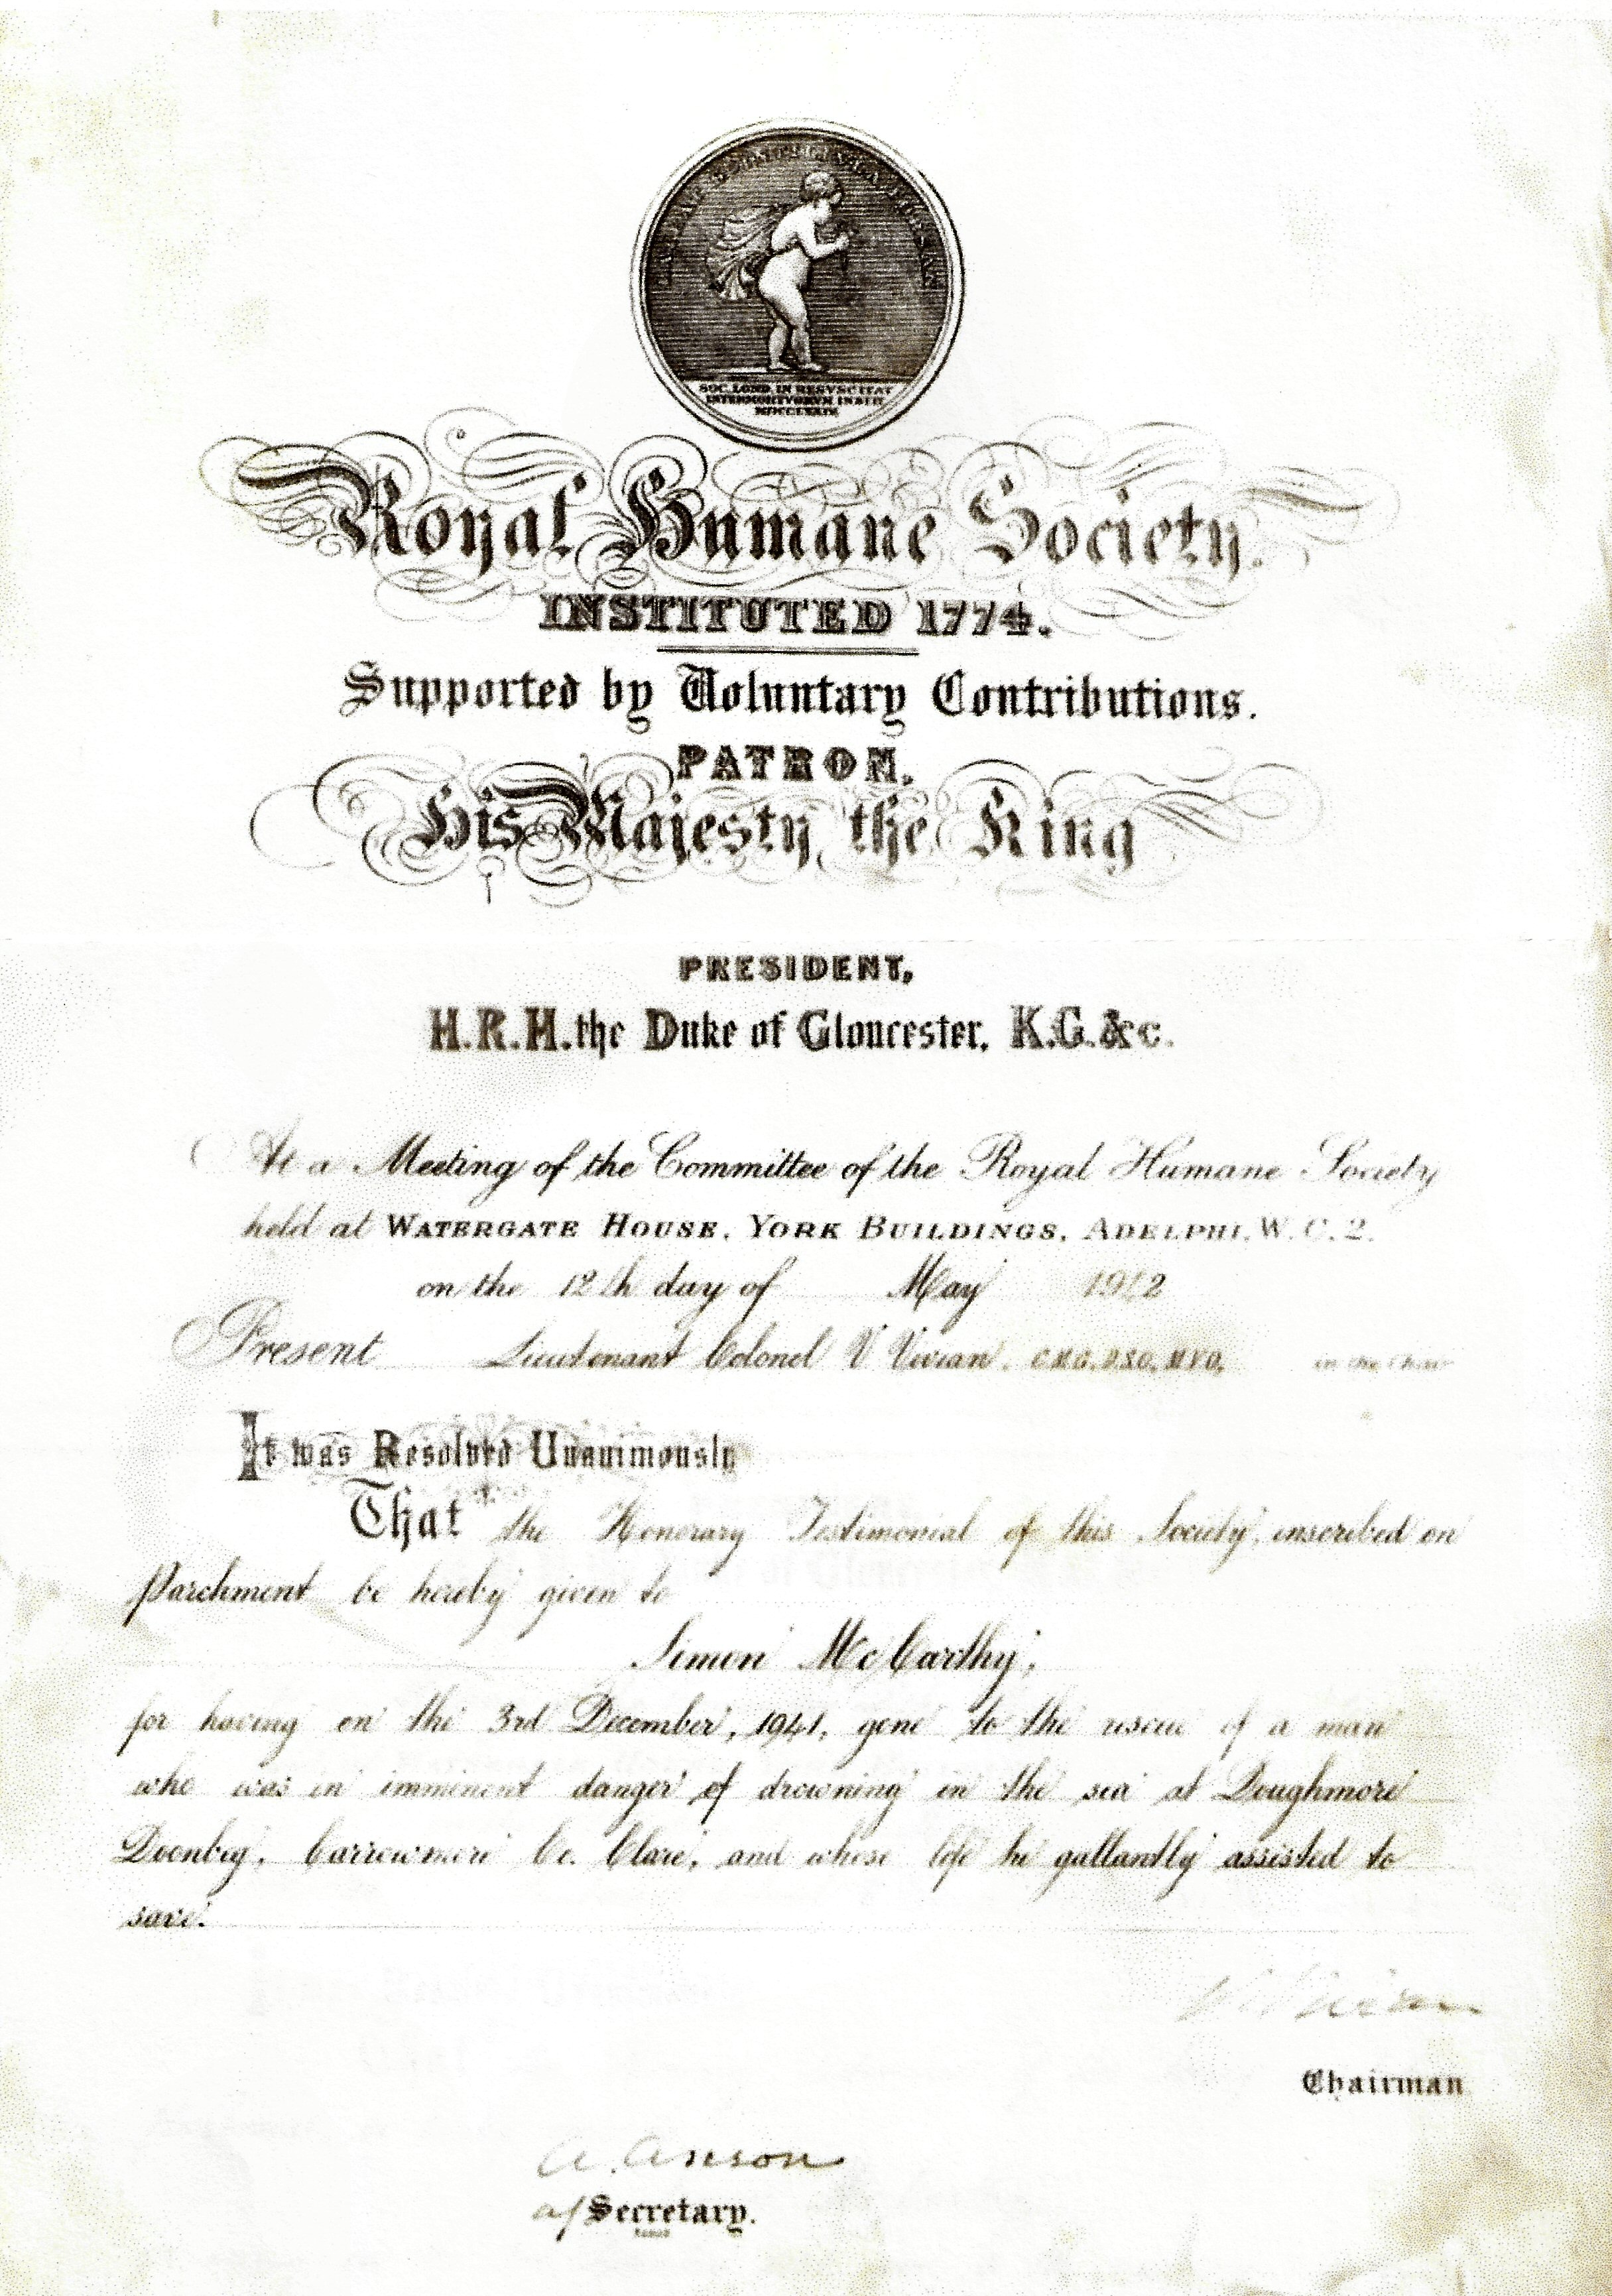 SOC. LOND. IN RESVSCITAT
INTERMORTVORVM INSTIT
Royal Humane Society.
INSTITUTED 1774.
Supported by Voluntary Contributions.
PATRON.
His Majesty the King
PRESIDENT,
H.R.H. the Duke of Gloucester, K.G. &c.
At a Meeting of the Committee of the Royal Humane Society
held at WATERGATE HOUSE, YORK BUILDINGS, ADELPHI, W.C.2.
on the 12th day of May 1942
Present Lieutenant Colonel V Vivian. C.M.G., D.S.O., M.V.O. in the Chair
It was Resolved Unanimously
That the Honorary Testimonial of this Society, inscribed on
Parchment be hereby given to
Simon McCarthy,
for having on the 3rd December, 1941, gone to the rescue of a man
who was in imminent danger of drowning in the sea at Doughmore
Doonbeg, Carrowmore Co. Clare, and whose life he gallantly assisted to
save.
V. Vivian
Chairman
A. Anson
a/ Secretary.